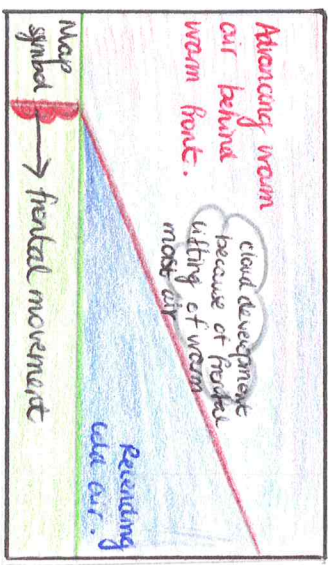 Advancing warm
air behind
warm front.
cloud development
because of frontal
lifting of warm
moist air
Receding
cold air.
Map
symbol
frontal movement